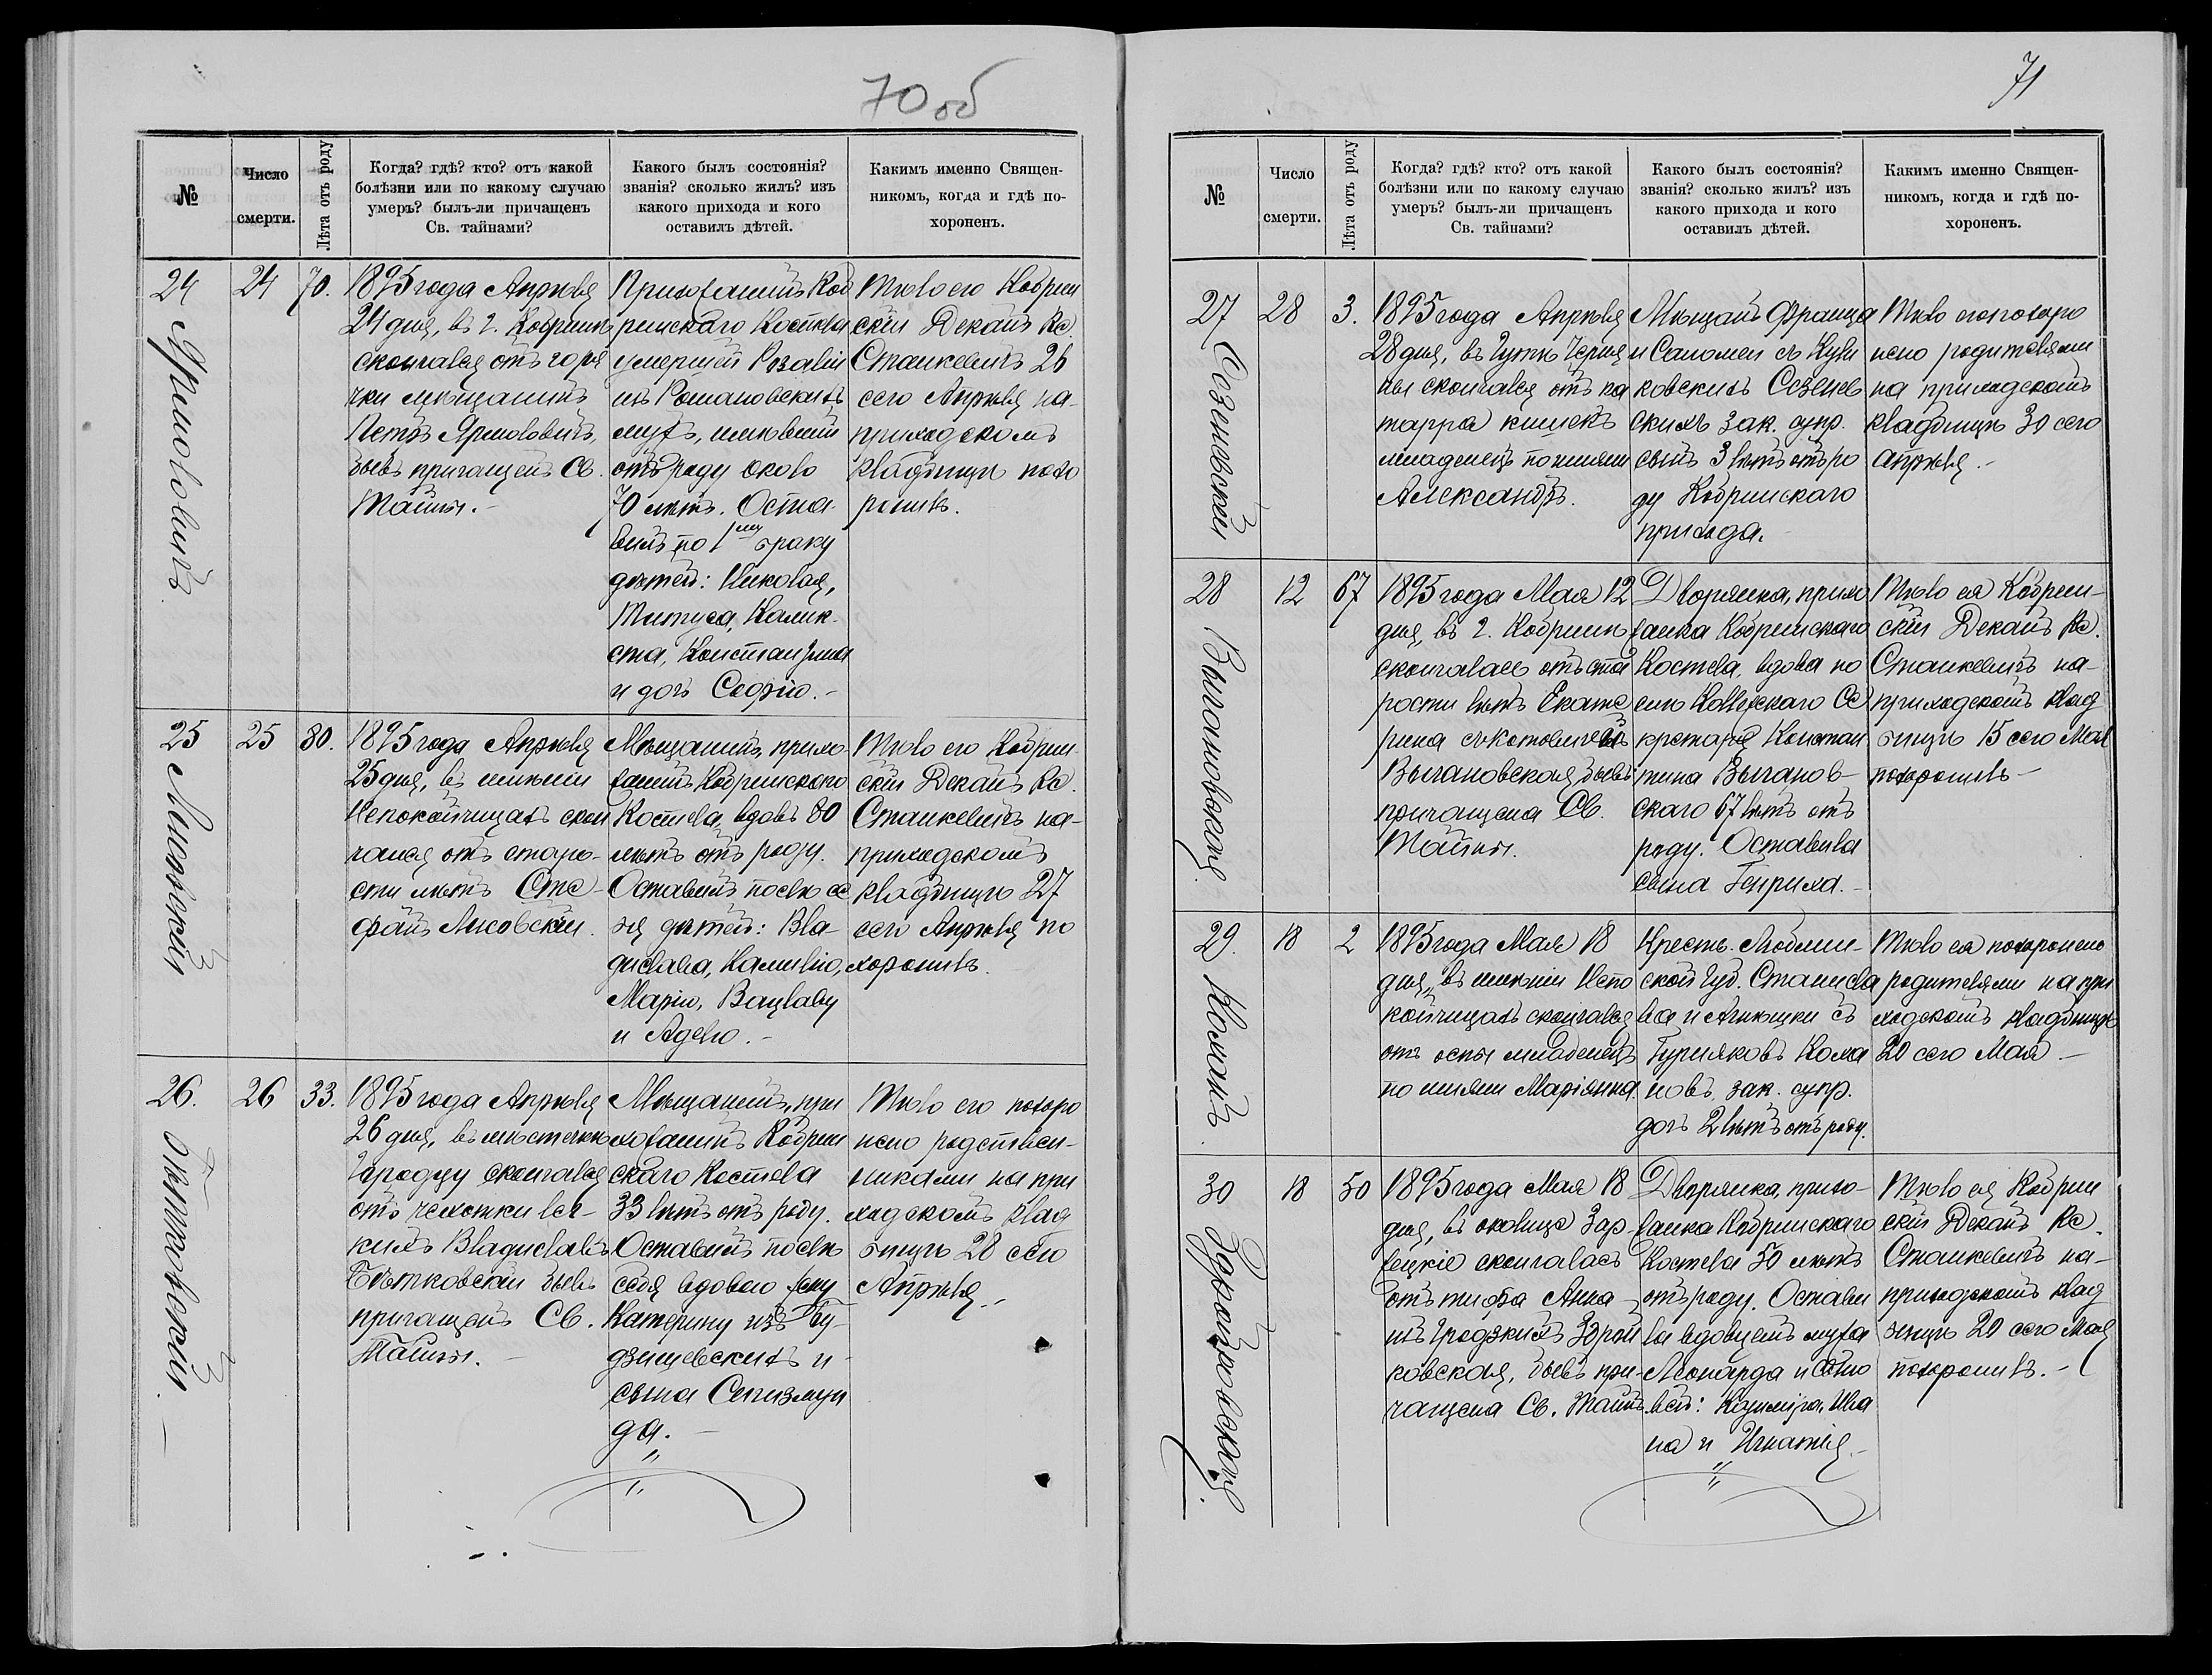 70 об
№
Число
смерти.
Лѣта отъ роду
Когда? гдѣ? кто? отъ какой
болѣзни или по какому случаю
умеръ? былъ-ли причащенъ
Св. тайнами?
Какого былъ состоянія?
званія? сколько жилъ? изъ
какого прихода и кого
оставилъ дѣтей.
Какимъ именно Священ-
никомъ, когда и гдѣ по-
хороненъ.
24
Ярмоловичъ
24
70.
1895 года Апрѣля
24 дня, въ г. Кобринѣ
скончался отъ горя
чки мѣщанинъ
Петръ Ярмоловичъ,
бывъ причащенъ Св.
Тайны.-
Прихожанинъ Коб
ринскаго Костела
умершей Розаліи
изъ Романовскихъ
мужъ, имѣвшій
отъ роду около
70 лѣтъ. Оста-
вилъ по 1му браку
дѣтей: Николая,
Титуса, Калик-
ста, Константина
и дочь Софію.-
Тѣло его Кобрин
скій Деканъ Кс
Станкевичъ 26
сего Апрѣля на-
приходскомъ
кладбищѣ похо
ронилъ.
25
Лисовскій
25
80.
1895 года Апрѣля
25 дня, въ имѣніи
Непокойчицахъ скон
чался отъ старо-
сти лѣтъ Сте-
фанъ Лисовскій.
Мѣщанинъ, прихо-
жанинъ Кобринского
Костела, вдовъ 80
лѣтъ отъ роду.
Оставилъ послѣ се
бя дѣтей: Вла-
дислава, Камилію,
Марію, Вацлаву
и Аделю.-
Тѣло его Кобрин-
скій Деканъ Кс.
Станкевичъ на-
приходскомъ
кладбищѣ 27
сего Апрѣля по
хоронилъ.
26.
Бытковскій.
26
33.
1895 года Апрѣля
26 дня, въ мѣстечкѣ
Городцу скончался
отъ чахотки лег-
кихъ Владиславъ
Бытковскій бывъ
причащенъ Св.
Тайны.-
Мѣщанинъ, при
хожанинъ Кобрин
скаго Костела
33 лѣтъ отъ роду.
Оставилъ послѣ
себя вдовою жену
Катерину изъ Бу-
дзишевскихъ и-
сына Сигизмун
да.-
Тѣло его похоро
нено родствен-
никами на при
ходскомъ клад
бищѣ 28 сего
Апрѣля.-
71
№
Число
смерти.
Лѣта отъ роду
Когда? гдѣ? кто? отъ какой
болѣзни или по какому случаю
умеръ? былъ-ли причащенъ
Св. тайнами?
Какого былъ состоянія?
званія? сколько жилъ? изъ
какого прихода и кого
оставилъ дѣтей.
Какимъ именно Священ-
никомъ, когда и гдѣ по-
хороненъ.
27
28
3.
1895 года Апрѣля
28 дня, въ
скончался отъ ка
тарра кишекъ
младенецъ по имени
Александръ.
Мѣщанъ Франца
и Саломеи съ
зак. супр.
сынъ 3 лѣтъ отъ ро
ду Кобринскаго
прихода.
Тѣло его похоро
нено родителями
на приходскомъ
кладбищѣ 30 сего
Апрѣля.-
28
Выгановская.
12
67
1895 года Мая 12
дня, въ г. Кобринѣ
скончалась отъ ста
рости лѣтъ Екате
рина
Выгановская, бывъ
причащена Св.
Тайны.
Дворянка, прихо
жанка Кобринскаго
Костела, вдова по
слѣ Се
кретаря Констан
тина Выганов-
скаго 67 лѣтъ отъ
роду. Оставила
сына Генриха.-
Тѣло ея Кобрин-
скій Деканъ Кс.
Станкевичъ на-
приходскомъ клад
бищѣ 15 сего Мая
похоронилъ-
29.
18
2
1895 года Мая 18
дня, въ имѣніи Непо
койчицахъ скончалася
отъ оспы младенецъ
по имени Маріянна.
Крестъ. Люблин-
ской губ. Станисла
ва и Агнѣшки съ
зак. супр.
дочь 2 лѣтъ отъ роду.
Тѣло ея похоронено
родителями на при
ходскомъ кладбищѣ
20 сего Мая-
30
18
50
1895 года Мая 18
дня, въ околицѣ
скончалась
отъ тифа Анна
бывъ при-
чащена Св. Тайнъ.
Дворянка, прихо-
жанка Кобринскаго
Костела 50 лѣтъ
отъ роду. Остави
ла вдовцемъ мужа
Леонарда и
Казиміра, Ива
на и Игнатія.-
Тѣло ея Кобрин
скій Деканъ Кс.
Станкевичъ на-
приходскомъ клад
бищѣ 20 сего Мая
похоронилъ.-